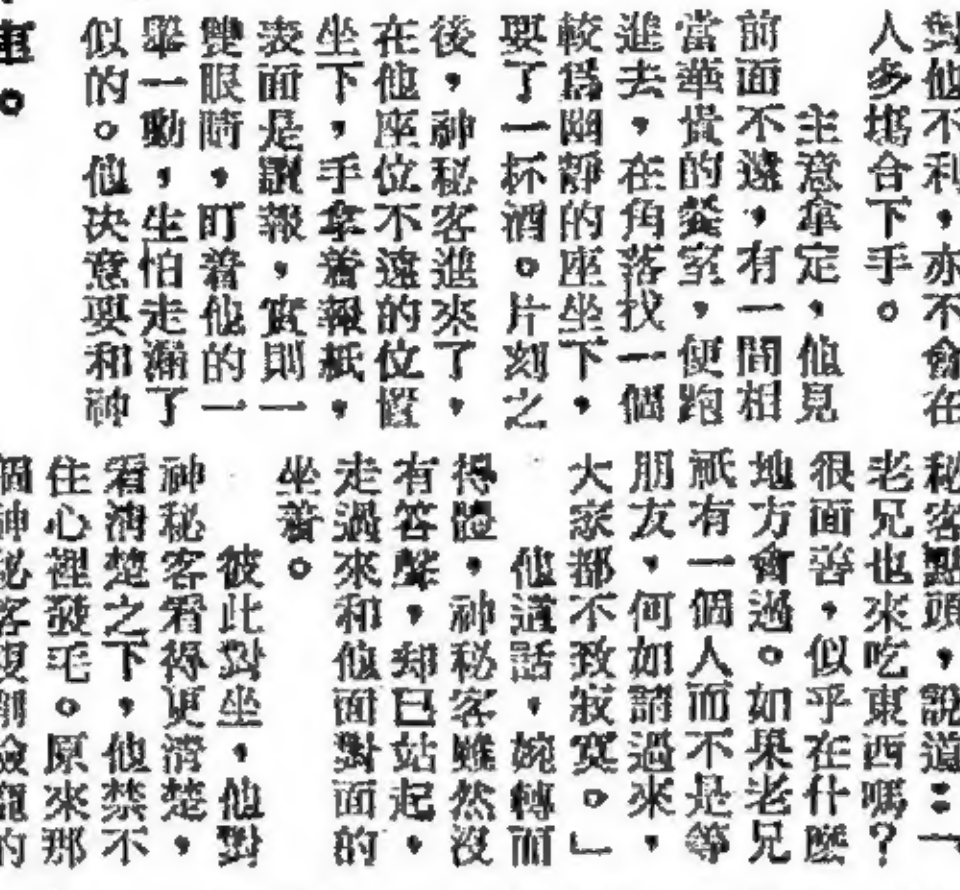 對他不利，亦不會在
人多塲合下手。
主意拿定，他見
前面不遠，有一間相
當華貴的餐室，便跑
進去，在角落找一個
較爲幽靜的座坐下，
要了一杯酒。片刻之
後，神秘客進來了，
在他座位不遠的位置
坐下，手拿着報紙，
表面是讀報，實則一
雙眼睛，盯着他的一
舉一動，生怕走漏了
似的。他决意要和神
秘客點頭，說道：「
老兄也來吃東西嗎？
很面善，似乎在什麼
地方會過。如果老兄
祇有一個人而不是等
朋友，何如請過來，
大家都不致寂寞。」
他這話，婉轉而
得體，神秘客雖然沒
有答聲，却已站起，
走過來和他面對面的
坐着。
彼此對坐，他對
神秘客看得更清楚，
看清楚之下，他禁不
住心裡發毛。原來那
個神秘客